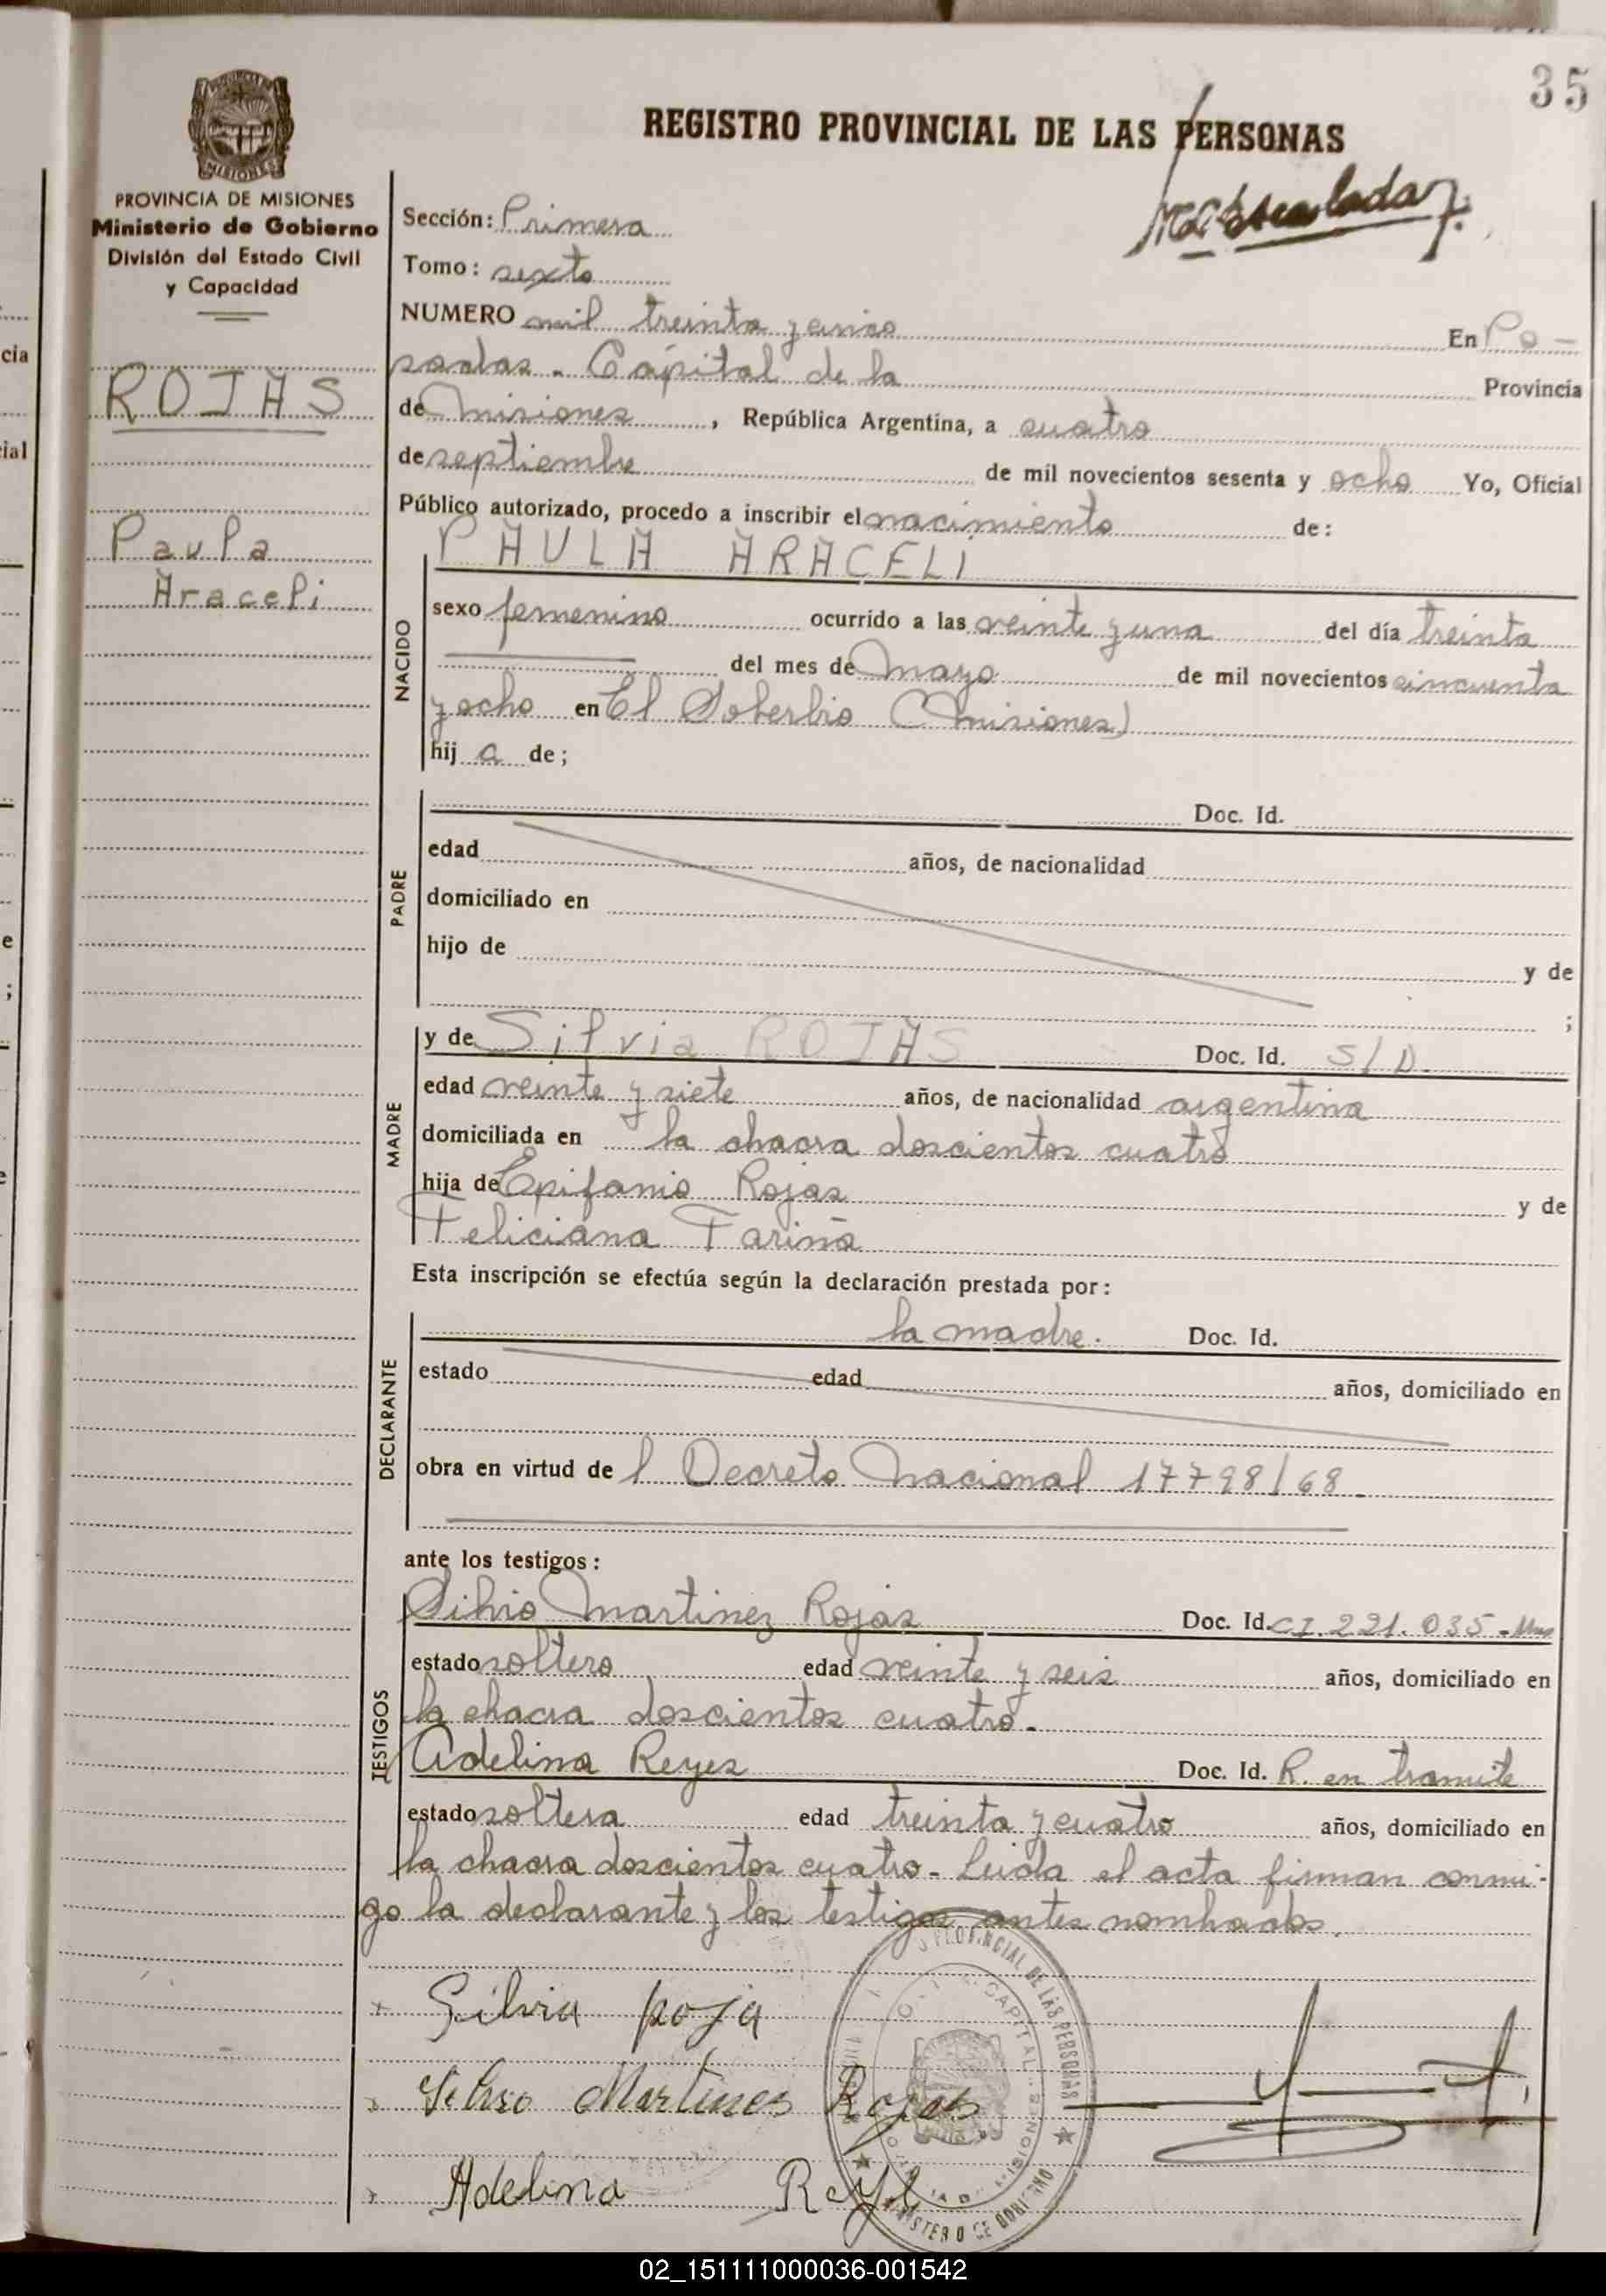 35
REGISTRO PROVINCIAL DE LAS PERSONAS
MISIONES
PROVINCIA DE MISIONES
Ministerio de Gobierno
División del Estado Civil
y Capacidad
ROJAS
Paula
Araceli
Sección: Primera
Tomo: sexto
NUMERO mil treinta y cinco En Po-
sadas. Capital de la Provincia
de Misiones, República Argentina, a cuatro
de septiembre de mil novecientos sesenta y ocho Yo, Oficial
Público autorizado, procedo a inscribir el nacimiento de:
NACIDO
PAULA ARACELI
sexo femenino ocurrido a las veinte y una del día treinta
del mes de Mayo de mil novecientos cincuenta
y ocho en El Soberbio (Misiones)
hij a de;
PADRE
Doc. Id.
edad años, de nacionalidad
domiciliado en
hijo de y de
;
MADRE
y de Silvia ROJAS Doc. Id. S/D.
edad veinte y siete años, de nacionalidad argentina
domiciliada en la chacra doscientos cuatro
hija de Epifanio Rojas y de
Feliciana Fariña
Esta inscripción se efectúa según la declaración prestada por:
DECLARANTE
la madre. Doc. Id.
estado edad años, domiciliado en
obra en virtud de l Decreto Nacional 17798/68.
ante los testigos:
TESTIGOS
Silvio Martinez Rojas Doc. Id. CI. 221.035-
estado soltero edad veinte y seis años, domiciliado en
la chacra doscientos cuatro.
Adelina Reyes Doc. Id. R. en tramite
estado soltera edad treinta y cuatro años, domiciliado en
la chacra doscientos cuatro- Leida el acta firman conmi-
go la declarante y los testigos antes nombrados.
Silvia Roja
Silvio Martines Rojas
Adelina
PROVINCIAL DE LAS PERSONAS
CAPITAL
MINISTERIO DE GOBIERNO
cia
cial
e
;
02_151111000036-001542